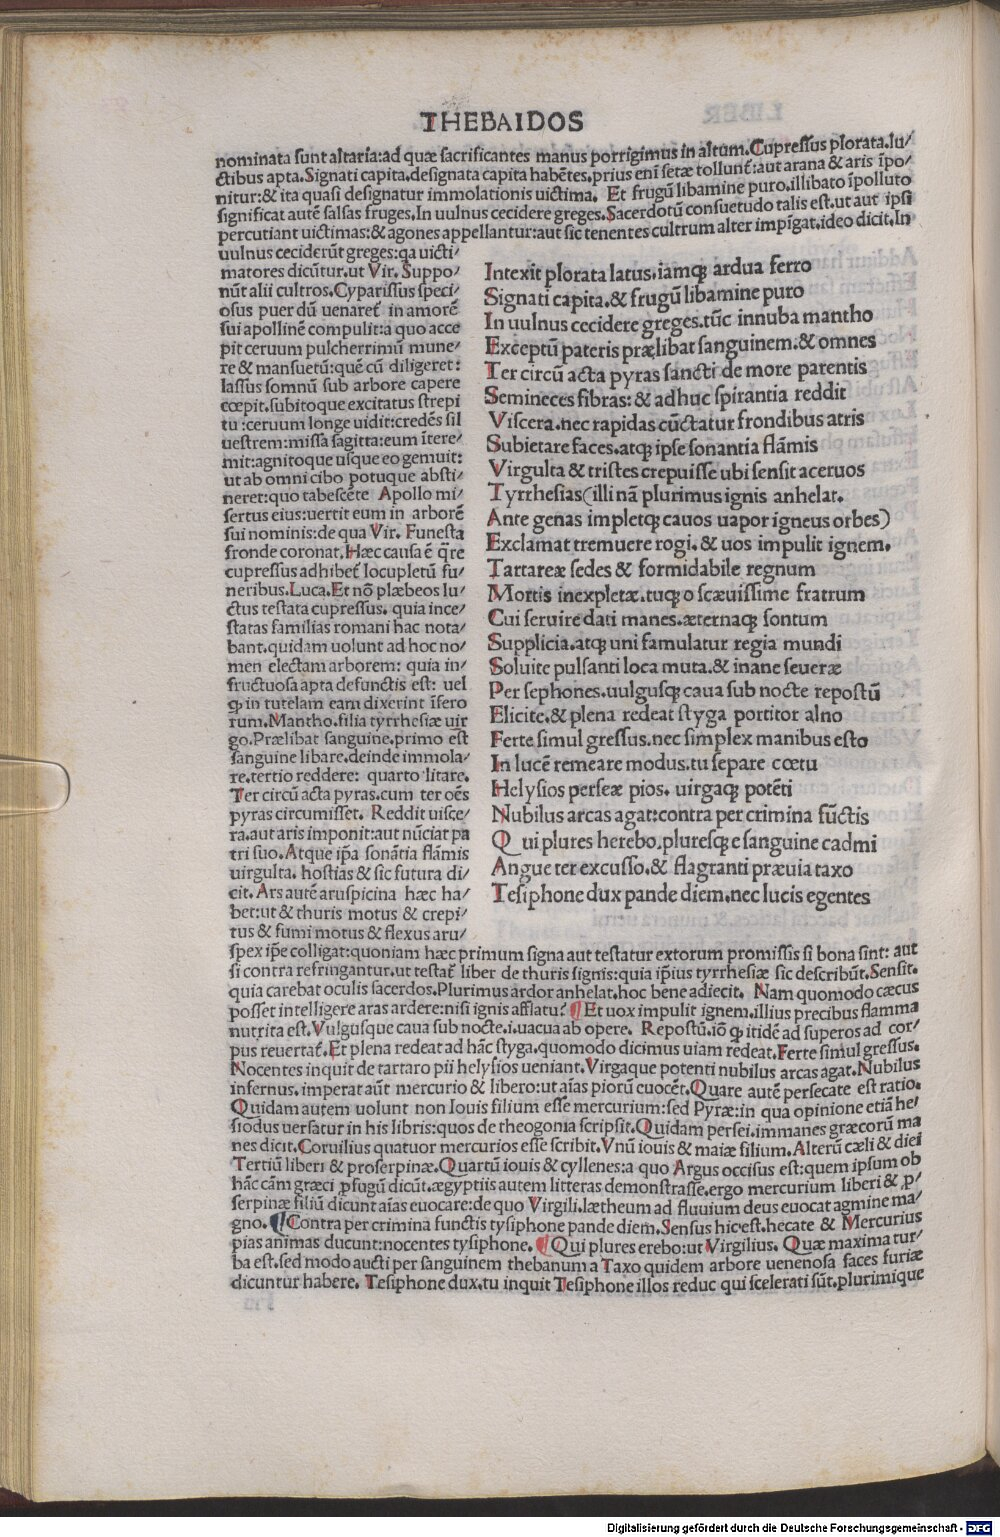 THEBAIDOS
nominata sunt altaria:ad quæ sacrificantes manus porrigimus in altum.Cupressus plorata.lu/
ctibus apta.Signati capita.designata capita habētes.prius enī setæ tollunt̄:aut arana & aris īpo/
nitur:& ita quasi designatur immolationis uictima. Et frugū libamine puro.illibato īpolluto
significat autē salsas fruges.In uulnus cecidere greges.Sacerdotū consuetudo talis est.ut aut ipsi
percutiant uictimas:& agones appellantur:aut sic tenentes cultrum alter impīgat.ideo dicit.In
uulnus cecidcrūt greges:qa uicti/
matores dicūtur.ut Vir. Suppo/
nūt alii cultros.Cyparissus speci/
osus puer dū uenaret̄ in amorē
sui apollinē compulit:a quo acce
pit ceruum pulcherrimū mune/
re & mansuetū:quē cū diligeret:
lassus somnū sub arbore capere
cœpit.subitoque excitatus strepi
tu :ceruum longe uidit:credēs sil
uestrem:missa sagitta:eum ītere/
mit:agnitoque usque eo gemuit:
ut ab omni cibo potuque absti/
neret:quo tabescēte Apollo mi/
sertus eius:uertit eum in arborē
sui nominis:de qua Vir. Funesta
fronde coronat.Hæc causa ē q̄re
cupressus adhibet̄ locupletū fu/
neribus.Luca.Et nō plæbeos lu/
ctus testata cupressus. quia ince/
statas familias romani hac nota/
bant.quidam uolunt ad hoc no/
men electam arborem: quia in/
fructuosa apta defunctis est: uel
ꝙ in tutelam eam dixerint īsero
rum.Mantho.filia tyrrhesiæ uir
go.Prælibat sanguine.primo est
sanguine libare.deinde immola/
re.tertio reddere: quarto litare.
Ter circū acta pyras.cum ter oēs
pyras circumisset. Reddit uisce/
ra.aut aris imponit:aut nūciat pa
tri suo.Atque ip̄a sonātia flāmis
uirgulta. hostias & sic futura di/
cit.Ars autē aruspicina hæc ha/
bet:ut & thuris motus & crepi/
tus & fumi motus & flexus aru/
Intexit plorata latus.iamqꝫ ardua ferro
Signati capita.& frugū libamine puro
In uulnus cecidere greges.tūc innuba mantho
Exceptū pateris prælibat sanguinem.& omnes
Ter circū acta pyras sancti de more parentis
Semineces fibras:& adhuc spirantia reddit
Viscera.nec rapidas cūctatur frondibus atris
Subietare faces.atqꝫ ipse sonantia flāmis
Virgulta & tristes crepuisse ubi sensit aceruos
Tyrrhesias(illi nā plurimus ignis anhelat.
Ante genas impletqꝫ cauos uapor igneus orbes)
Exclamat tremuere rogi.& uos impulit ignem.
Tartareæ sedes & formidabile regnum
Mortis inexpletæ.tuqꝫ o scæuissime fratrum
Cui seruire dati manes.æternaqꝫ sontum
Supplicia.atqꝫ uni famulatur regia mundi
Soluite pulsanti loca muta.& inane seueræ
Per sephones.uulgusqꝫ caua sub nocte repostū
Elicite.& plena redeat styga portitor alno
Ferte simul gressus.nec simplex manibus esto
In lucē remeare modus.tu separe cœtu
Helysios perseæ pios. uirgaqꝫ potēti
Nubilus arcas agat:contra per crimina fūctis
Qui plures herebo.pluresqꝫ e sanguine cadmi
Angue ter excusso.& flagranti præuia taxo
Tesiphone dux pande diem.nec lucis egentes
spex ip̄e colligat:quoniam hæc primum signa aut testatur extorum promissis si bona sint: aut
si contra refringantur.ut testat̄ liber de thuris signis:quia ip̄ius tyrrhesiæ sic describūt.Sensit.
quia carebat oculis sacerdos.Plurimus ardor anhelat.hoc bene adiecit. Nam quomodo cæcus
posset intelligere aras ardere:nisi ignis afflatu? ¶Et uox impulit ignem.illius precibus flamma
nutrita est.Vulgusque caua sub nocte.i.uacua ab opere. Repostū.iō ꝙ itidē ad superos ad cor/
pus reuertat̄.Et plena redeat ad hāc styga.quomodo dicimus uiam redeat.Ferte simul gressus.
Nocentes inquit de tartaro pii helysios ueniant.Virgaque potenti nubilus arcas agat.Nubilus
infernus. imperat aūt mercurio & libero:ut aīas piorū euocēt.Quare autē persecate est ratio.
Quidam autem uolunt non Iouis filium esse mercurium:sed Pyræ:in qua opinione etiā he/
siodus uersatur in his libris:quos de theogonia scripsit.Quidam persei.immanes græcorū ma
nes dicit.Coruilius quatuor mercurios esse scribit.Vnū iouis & maiæ filium.Alterū cæli & diei
Tertiū liberi & proserpinæ.Quartū iouis & cyllenes:a quo Argus occisus est:quem ipsum ob
hāc cām græci ꝓfugū dicūt.ægyptiis autem litteras demonstrasse.ergo mercurium liberi & ꝓ/
serpinæ filiū dicunt aīas euocare:de quo Virgili.lætheum ad fluuium deus euocat agmine ma/
gno. ¶Contra per crimina functis tysiphone pande diem.Sensus hic est.hecate & Mercurius
pias animas ducunt:nocentes tysiphone. ¶Qui plures erebo:ut Virgilius. Quæ maxima tur/
ba est.sed modo aucti per sanguinem thebanum a Taxo quidem arbore uenenosa faces furiæ
dicuntur habere. Tesiphone dux.tu inquit Tesiphone illos reduc qui scelerati sūt.plurimique
Digitalisierung gefördert durch die Deutsche Forschungsgemeinschaft - DFG